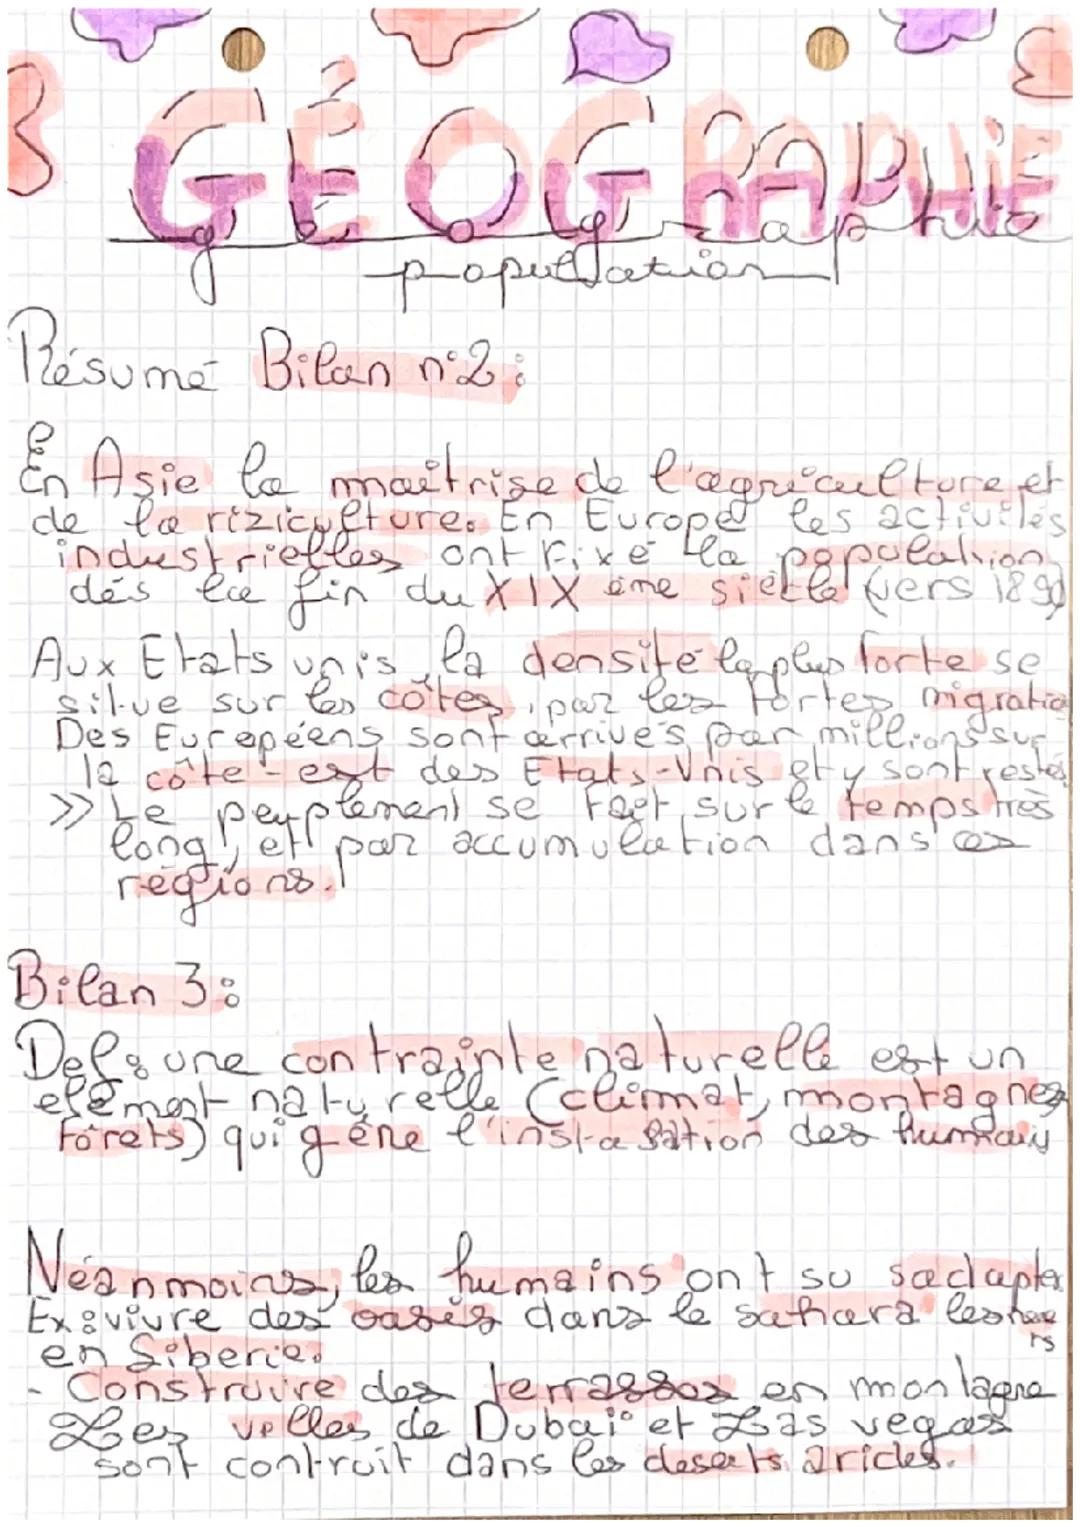 GÉOGRAPHiE
géographie
population
Résumé Bilan n°2:
En Asie la maîtrise de l'agriculture et
de la riziculture. En Europe les activités
industrielles ont fixé la population
dés la fin du XIX eme siècle (vers 1890)
Aux Etats unis, la densité la plus forte se
situe sur les côtes, par les fortes migratio
Des Européens sont arrivés par millions sur
la côte-est des Etats-Unis et y sont restés
>> Le peuplement se fait sur le temps très
long, et par accumulation dans ces
régions.
Bilan 3:
Def: une contrainte naturelle est un
element naturelle (climat, montagnes
forêts) qui gêne l'instalation des humains
Néanmoins, les humains ont su s'adapter
Ex: vivre des oasis dans le sahara les
en Siberie.
- Construire des terrasses en montagne
Les villes de Dubaï et Las vegas
sont contruit dans les deserts arides.